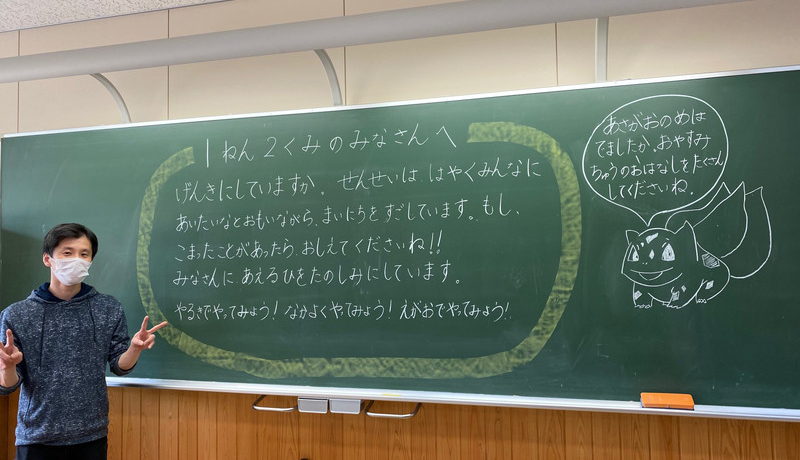 1ねん2くみのみなさんへ
げんきにしていますか。せんせいは、はやくみんなに
あいたいなとおもいながら、まいにちをすごしています。もし、
こまったことがあったら、おしえてくださいね!!
みなさんに、あえるひをたのしみにしています。
やるきでやってみよう!なかよくやってみよう!えがおでやってみよう!
あさがおのめは
でましたか。おやすみ
ちゅうのおはなしをたくさん
してくださいね。